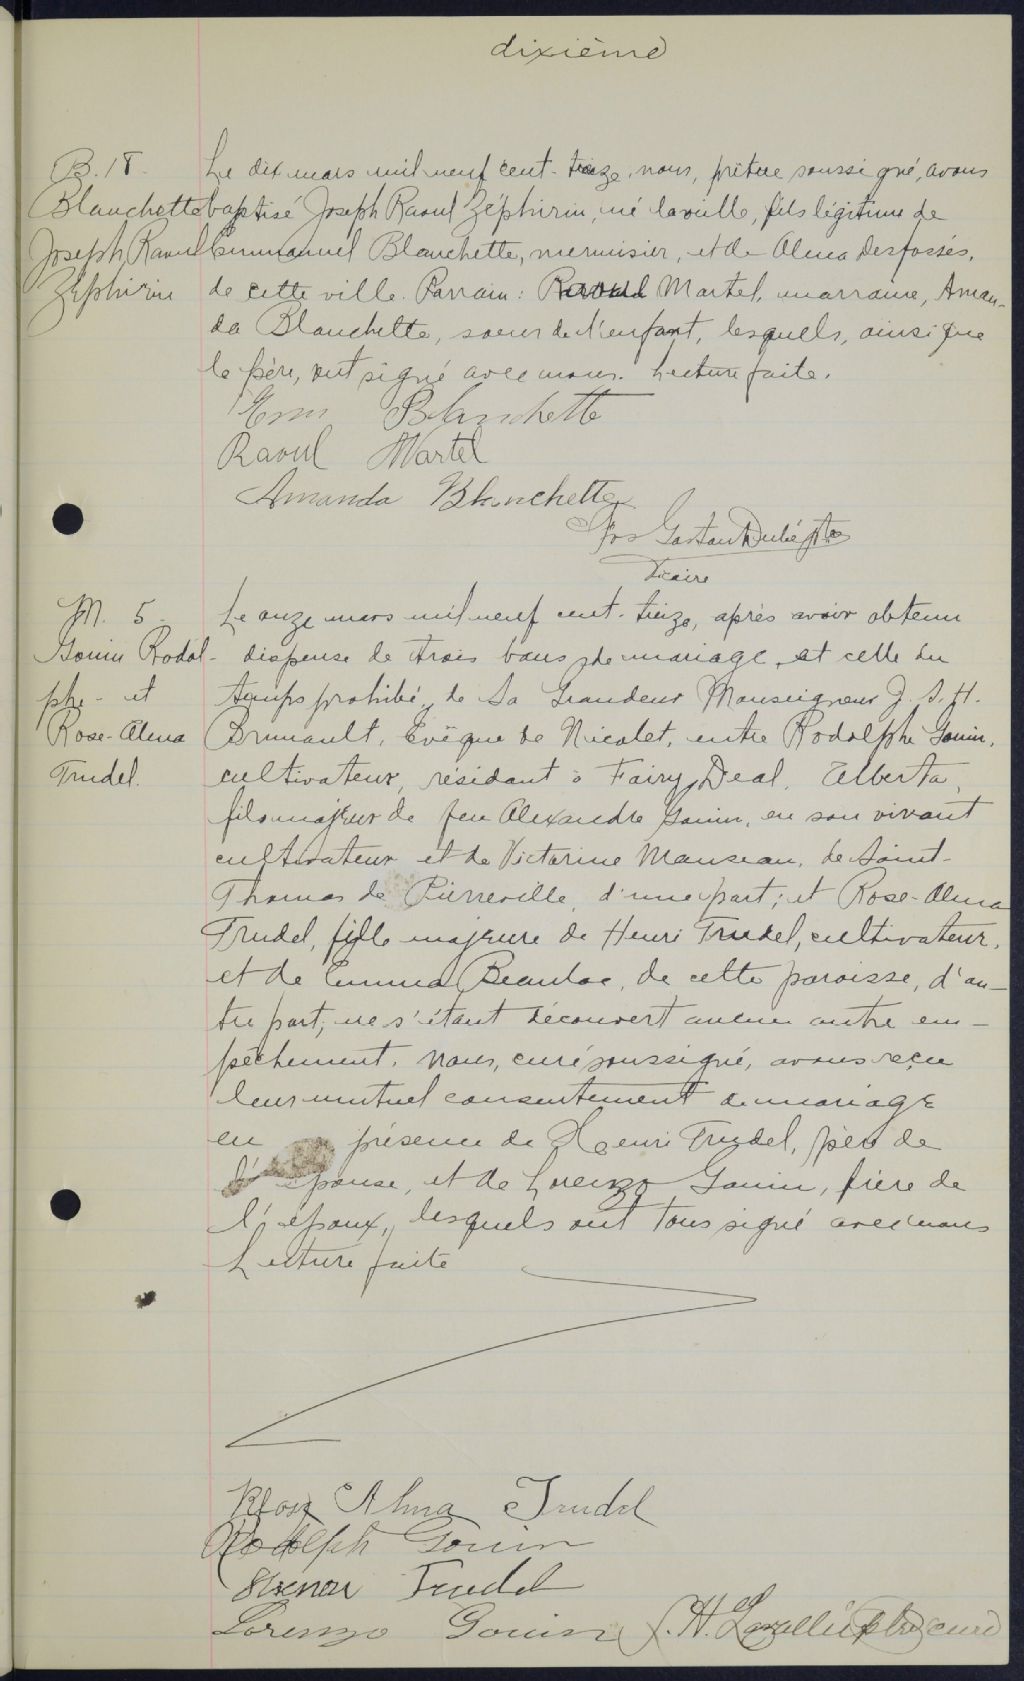 dixième
B. 18.
Blanchette
Joseph Raoul
Zéphirin
Le dix mars mil neuf cent-treize, nous, prêtre soussigné, avons
baptisé Joseph Raoul Zéphirin, né la veille, fils légitime de
Emmanuel Blanchette, menuisier, et de Alma Desfossés,
de cette ville. Parrain: Raoul Martel, marraine, Aman-
da Blanchette, soeur de l'enfant, lesquels, ainsi que
le père, ont signé avec nous. Lecture faite.
Em Blanchette
Raoul Martel
Amanda Blanchette
Jos Gaston Dubé ptre
Vicaire
M. 5.
Gouin Rodol-
phe - et
Rose-Alma
Trudel.
Le onze mars mil neuf cent-treize, après avoir obtenu
dispense de trois bans de mariage et celle du
temps prohibé, de Sa Grandeur Monseigneur J. S. H.
Brunault, Evêque de Nicolet, entre Rodolphe Gouin,
cultivateur, résidant à Fairy Deal, Alberta,
fils majeur de feu Alexandre Gouin, en son vivant
cultivateur et de Victorine Manseau, de Saint-
Thomas de Pierreville, d'une part; et Rose-Alma
Trudel, fille majeure de Henri Trudel, cultivateur,
et de Emma Beaulac, de cette paroisse, d'au-
tre part; ne s'étant découvert aucun autre em-
pêchement, nous, curé soussigné, avons reçu
leur mutuel consentement de mariage
en présence de Henri Trudel, père de
l'épouse, et de Lorenzo Gouin, frère de
l'époux, lesquels ont tous signé avec nous
Lecture faite
Rose Alma Trudel
Rodolph Gouin
Trudel
Lorenzo Gouin J. H. Lavallée ptre curé